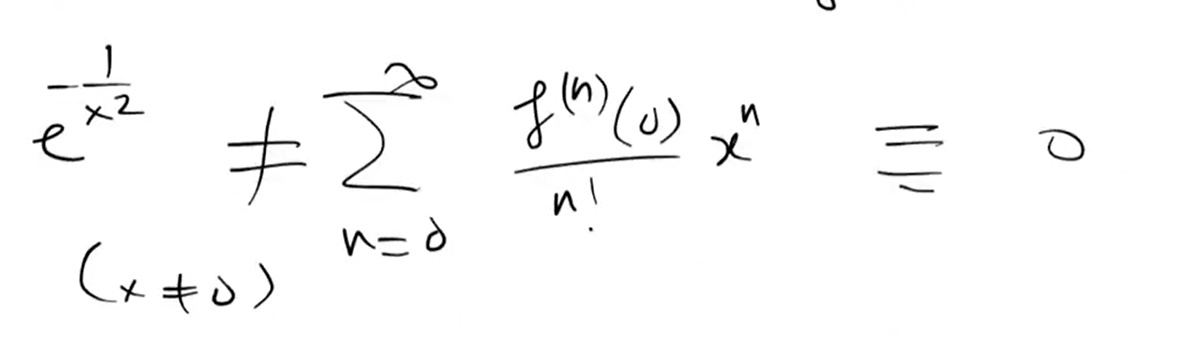 e^{-\frac{1}{x^2}} \neq \sum_{n=0}^{\infty} \frac{f^{(n)}(0)}{n!} x^n \equiv 0
(x \neq 0)